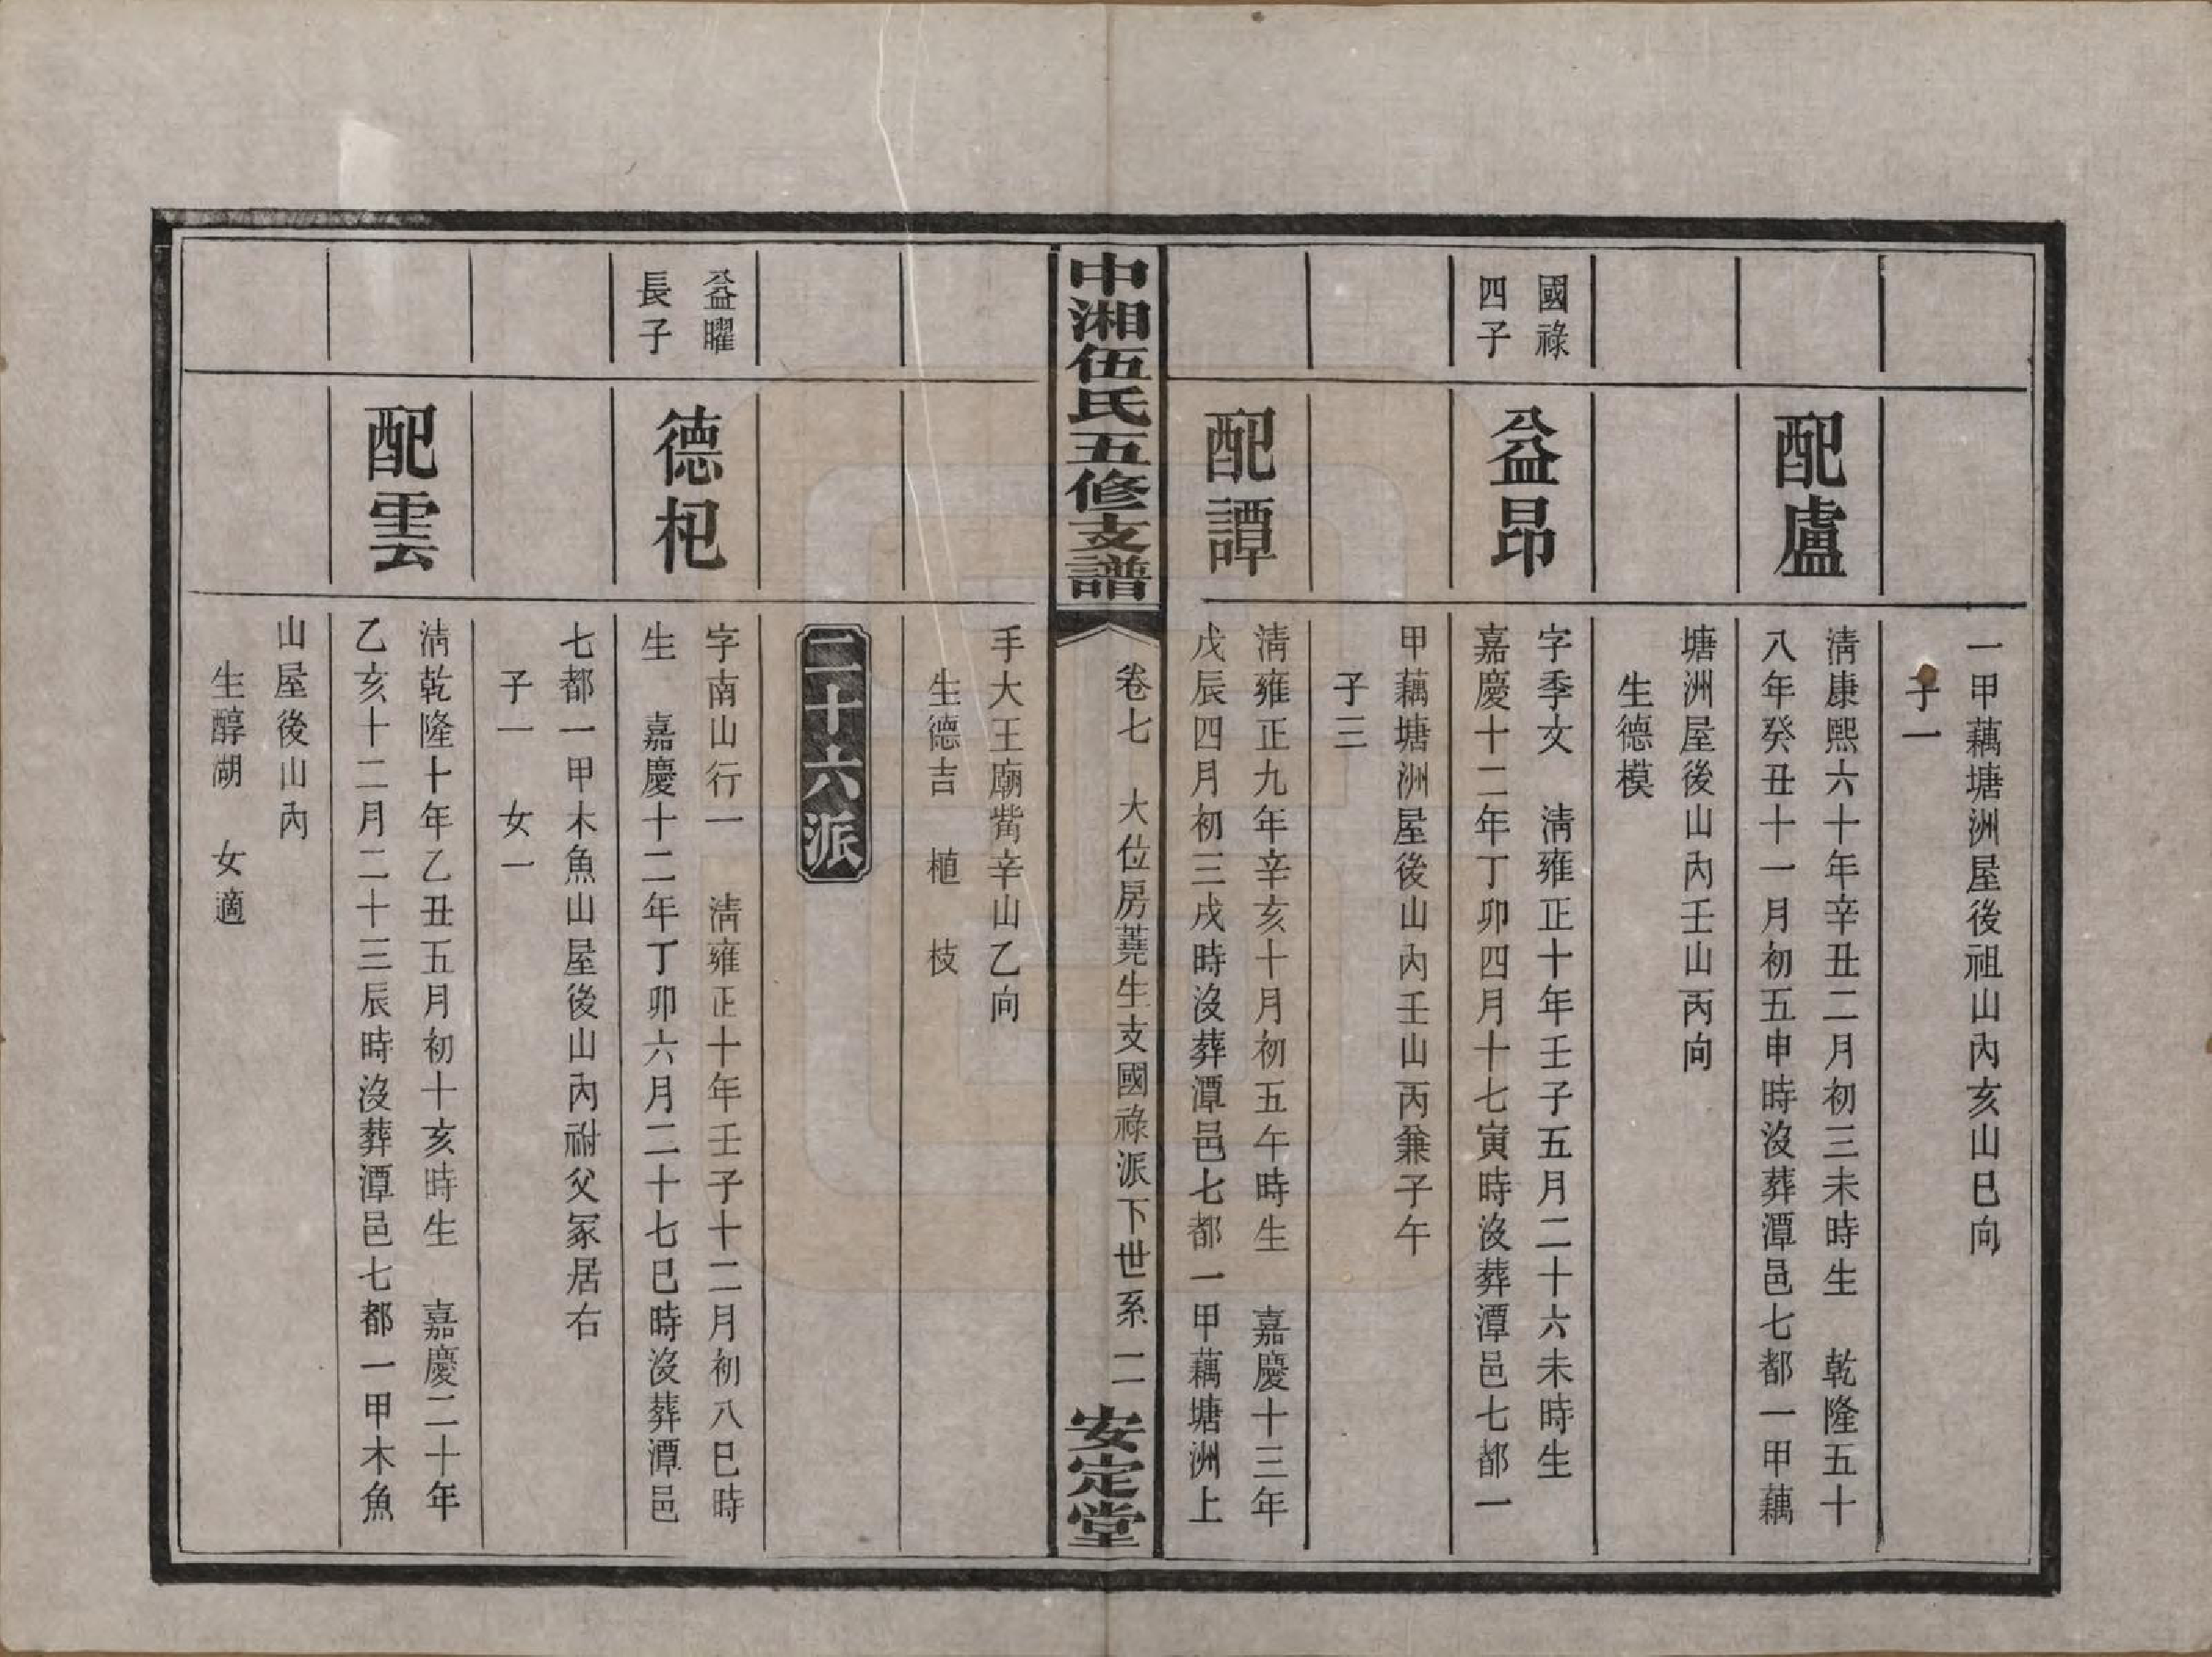 一甲藕塘洲屋後祖山內亥山巳向
子一
配盧
清康熙六十年辛丑二月初三未時生　乾隆五十
八年癸丑十一月初五申時沒葬潭邑七都一甲藕
塘洲屋後山內壬山丙向
生德模
國祿
四子
益昂
字季女　清雍正十年壬子五月二十六未時生
嘉慶十二年丁卯四月十七寅時沒葬潭邑七都一
甲藕塘洲屋後山內壬山丙兼子午
子三
配譚
清雍正九年辛亥十月初五午時生　嘉慶十三年
戊辰四月初三戌時沒葬潭邑七都一甲藕塘洲上
中湘伍氏五修支譜
卷七　大位房蕘生支國祿派下世系　二
安定堂
手大王廟觜辛山乙向
生德吉　植　枝
二十六派
益曜
長子
德杞
字南山行一　清雍正十年壬子十二月初八巳時
生　嘉慶十二年丁卯六月二十七巳時沒葬潭邑
七都一甲木魚山屋後山內祔父冢居右
子一　女一
配雲
清乾隆十年乙丑五月初十亥時生　嘉慶二十年
乙亥十二月二十三辰時沒葬潭邑七都一甲木魚
山屋後山內
生醇湖　女適